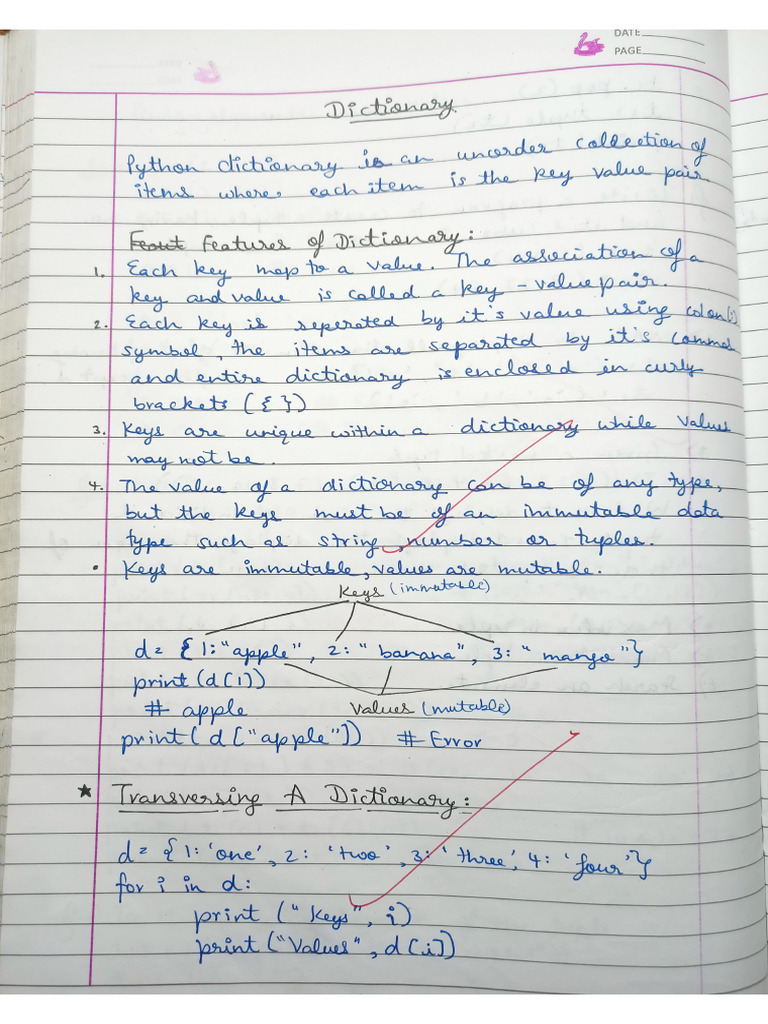 DATE
PAGE
Dictionary
Python dictionary is an unorder collection of
items where each item is the key value pair
Feaut Features of Dictionary:
1. Each key map to a value. The association of a
key and value is called a key - value pair.
2. Each key is seperated by it's value using colon(:)
symbol, the items are separated by it's comma
and entire dictionary is enclosed in curly
brackets ({ })
3. Keys are unique within a dictionary while values
may not be.
4. The value of a dictionary can be of any type,
but the keys must be of an immutable data
type such as string, number or tuples.
• Keys are immutable, values are mutable.
Keys (immutable)
d= { 1: "apple", 2: "banana", 3: "mango"}
print (d[1])
# apple
Values (mutable)
print( d ["apple"]) # Error
★ Transversing A Dictionary:
d= { 1: 'one', 2: 'two', 3: 'three', 4: 'four'}
for i in d:
print ("Keys", i)
print ("Values", d[i])